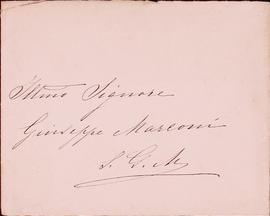 Illmo Signore
Giuseppe Marconi
S. G. M.